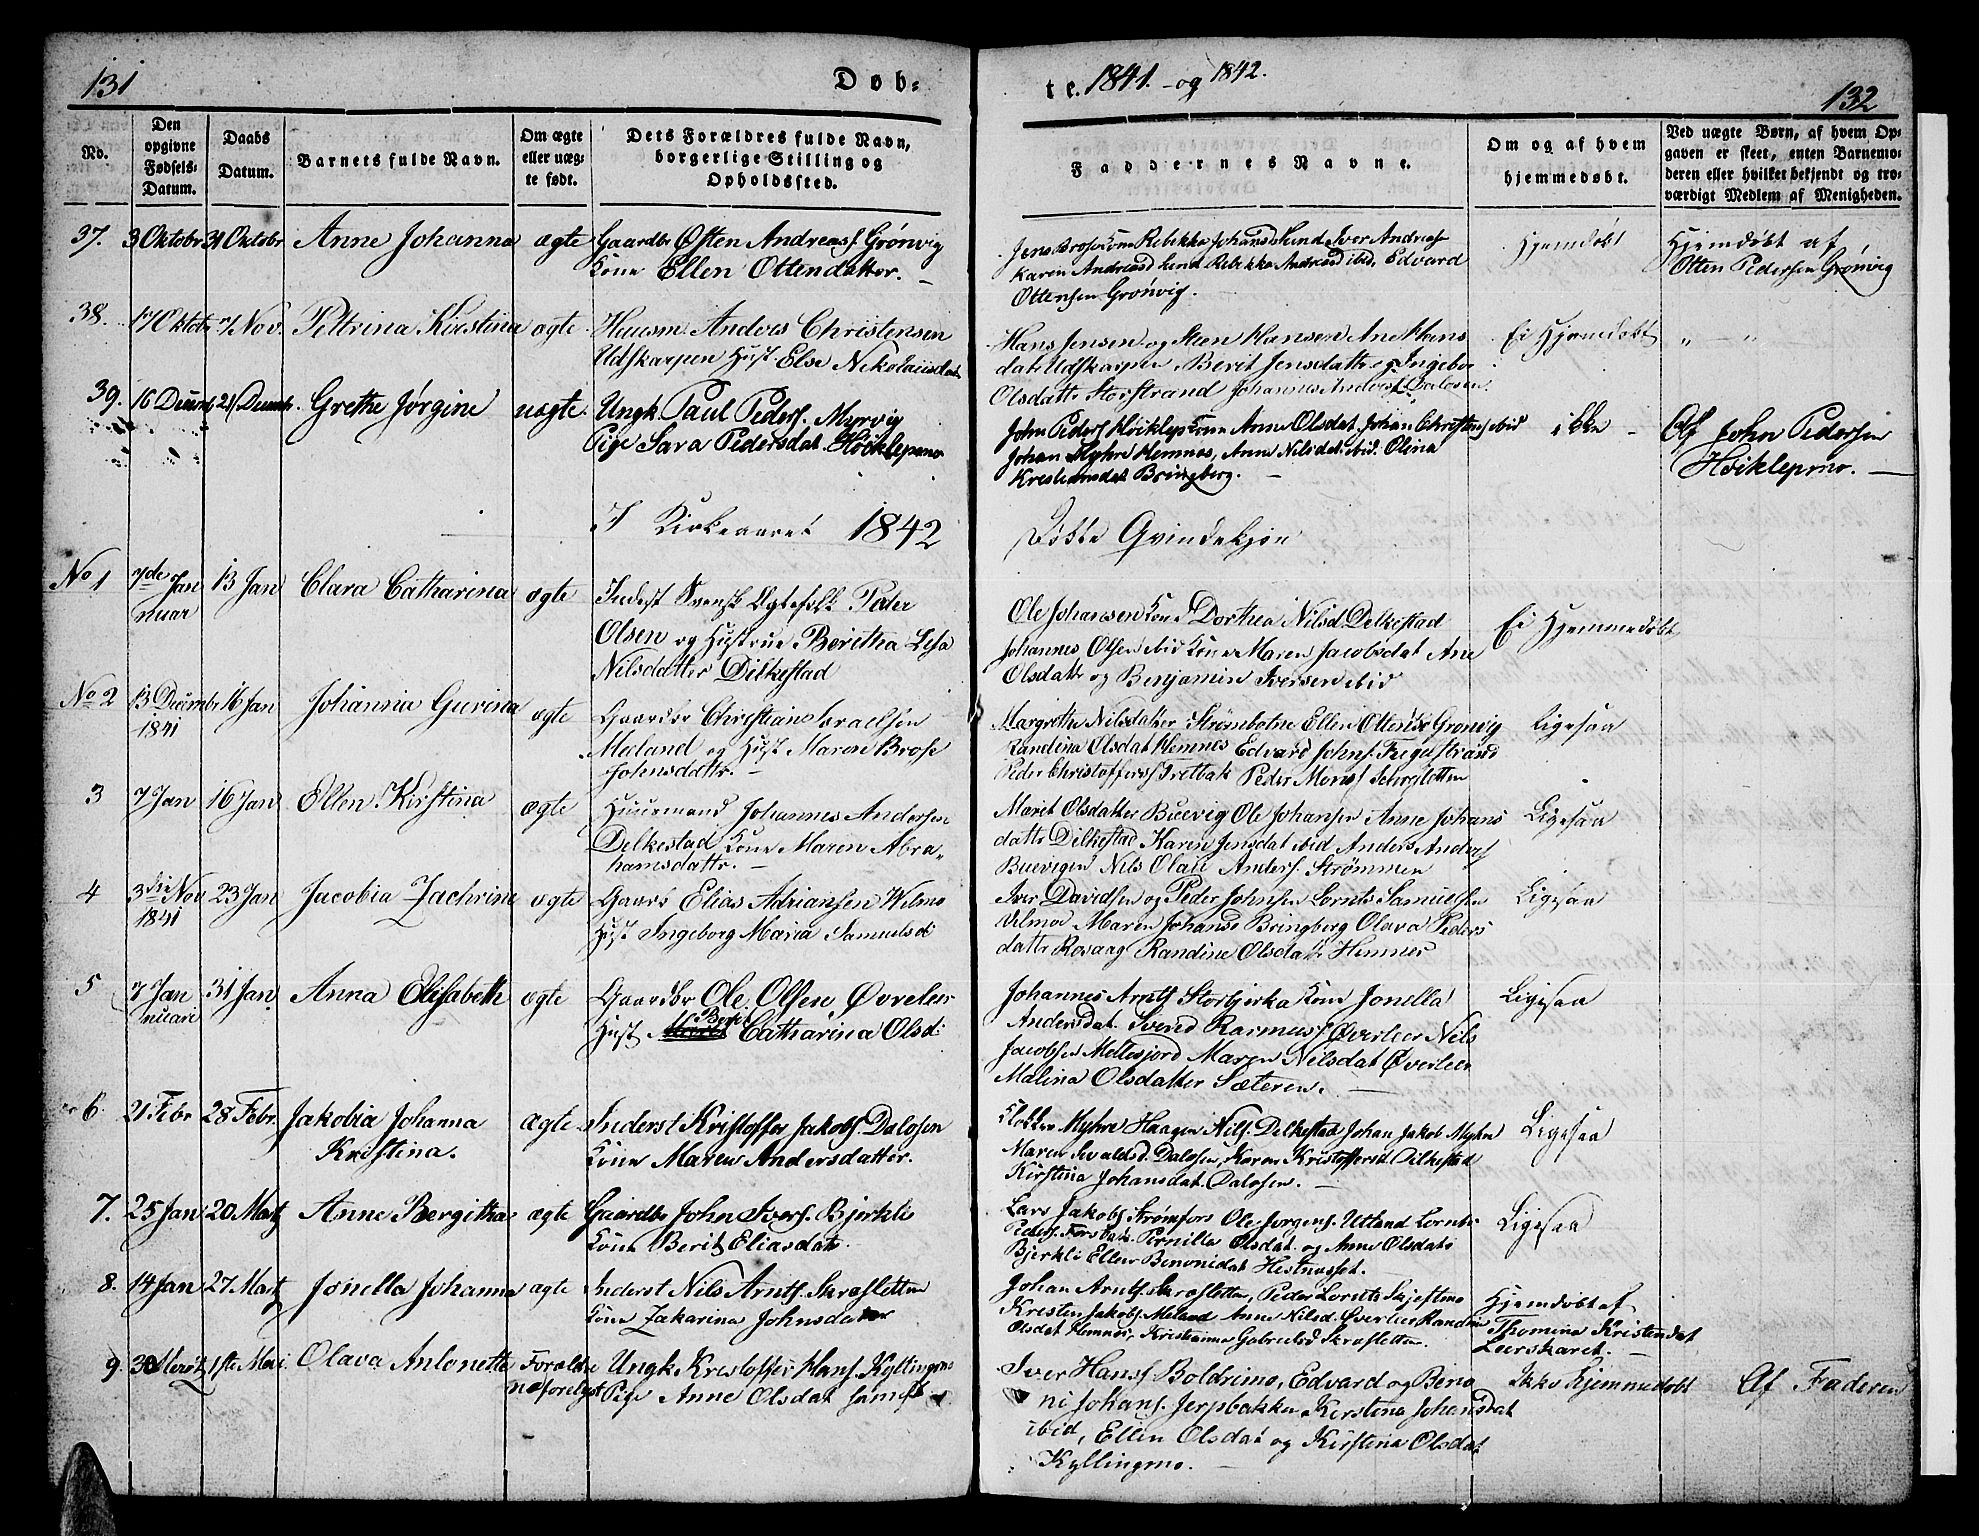 131
Døb-
te. 1841. og 1842.
132
No.
Den opgivne Fødsels-Datum.
Daabs Datum.
Barnets fulde Navn.
Om ægte eller uæg-te født.
Dets Forældres fulde Navn, borgerlige Stilling og Opholdssted.
Faddernes Navne.
Om og af hvem hjemmedøbt.
Ved uægte Børn, af hvem Op-gaven er skeet, enten Barnemo-deren eller hvilket bekjendt og tro-værdigt Medlem af Menigheden.
37. 3 Oktobr 31 Oktobr Anne Johanna ægte Gaardbr Østen Andreasf Grønvig
Kone Ellen Ottendatter.
Jens Brose Kone Rebekka Johansd Sund Iver Andreasf
Karen Andreasd Sund Rebekka Andreasd ibid, Edvard
Ottensen Grønvig.
Hjemdøbt
Hjemdøbt af
Otten Pedersen Grønvig
38. 17 Oktob 7 Nov. Petrina Kirstina ægte Huusm Anders Christensen
Udskarpen Hust. Else Nikolaiisdat
Hans Jensen og Steen Hansen Ane Hans
dat Udskarpen, Berit Jensdattr og Ingebor
Olsdattr Storstrand Johannes Andersf Dalosen
Ei Hjemedøbt
" - "
39. 16 Decemb 21 Decembr. Grethe Jørgine uægte Ungk Paul Pedersf. Myrvig
Pige Sara Pedersdat. Høiklepmo
John Pedersf Høiklep Kone Anne Olsdat. Johan Christensf ibid
Johan Myhre Hemnes, Anne Nilsdat ibid. Olina
Kristiansdat Bringberg.
ikke
Af John Pedersen
Høiklepmo.
I Kirkeaaret 1842
Døbte Qvindekjøn
No 1 7de Jan 13 Jan Clara Catharina ægte Inderst Svensk Egtefolk Peder
nuar
Olsen og Hustrue Beritha Lisa
Nilsdatter Dilkestad
Ole Johansen Kone Dorthea Nilsd Delkestad
Johannes Olsen ibid Kone Maren Jacobsdat Ane
Olsdattr og Benjamin Iversen ibid
Ei Hjemmedøbt
No 2 13 Decembr 16 Jan Johanna Gurina ægte Gaardbr Christian Israelsen
1841
Meland og Hust Maren Brose
Johnsdattr.
Margrethe Nilsdatter Strømbotne Ellen Ottensd Grønvig
Randina Olsdat Hemnes Edvard Johnsf Fuglestrand
Peder Christoffersf Tretbak Peder Monsf Seterslettten
Ligesaa
3 7 Jan 16 Jan Ellen Kirstina ægte Huusmand Johannes Andersen
Delkestad Kone Maren Abra-
hamsdattr.
Maret Olsdatter Buevig Ole Johansen Anne Johans
dattr Dilkestad Karen Jensdat ibid Anders Andersf
Buevigen Nils Olai Andersf. Strømmen
Ligesaa
4 3die Nov 23 Jan Jacobia Zachrine ægte Gaardb Elias Adriansen Wilmo
1841
Hust Ingeborg Maria Samuelsd:
Iver Davidsen og Peder Johnsen Lornts Samuelsen
Vilmoe Maren Johansd Bringberg Olava Peders
dattr Rosaag Randine Olsdatr Hemnes
Ligesaa
5 7 Jan 31 Jan Anna Elisabeth ægte Gaardbr Ole Olsen Øvreleer
nuari
Berit
Hust Catharina Olsd:
Johannes Arntsf Storbjerka Kone Jonella
Andersdat. Svend Rasmusf Øverleer Nils
Jacobsen Mellesjord Maren Nilsdat Øverleer
Malina Olsdatter Sæteren.
Ligesaa
6. 21 Febr 28 Febr. Jakobia Johanna ægte Inderst Kristoffer Jakobsf. Dalosen
Kristina.
Kone Maren Andersdatter.
Klokker Myhre Haagen Nilsf. Delkestad Johan Jakob Myhre
Maren Sivaldsd. Dalosen, Karen Kristoffersd Dilkestad
Kirstina Johansdat. Dalosen.
Ligesaa
7. 25 Jan 20 Marts Anne Bergitha ægte Gaardbr John Iversf. Bjerkli
Kone Berit Eliasdatr.
Lars Jakobsf Strømfors Ole Jørgensf. Utland Lornts
Pedersf. Forsbak Pernilla Olsdat. og Anne Olsdatr
Bjerkli Ellen Benonidat Hestnesset.
Ligesaa
8. 14 Jan 27 Marts Jonella Johanna ægte Inderst Nils Arntsf. Skrasletten
Kone Zakarina Johnsdatter
Johan Arntsf. Skrasletten, Peder Lornts Skjeftmo
Kristen Jakobsf Meland Anne Nilsd. Øverleer Randine
Olsdat Hemnes, Kristianna Gabrielsd Skrasletten.
Hjemdøbt af
Thomina Kristendat
Leerskaret.
9. 30 Marts 1ste Mai. Olava Antonetta Forældre Ungk Kristoffer Hansf. Kyllingmo
ne forelovet Pige Anne Olsdat samest.
Iver Hansf. Boldrimo, Edvard og Beno
ni Johansf. Jerpbakken Kerstina Johansdat
ibid, Ellen Olsdat og Kirstina Olsdat
Kyllingmo.
Ikke Hjemmedøbt
Af Faderen